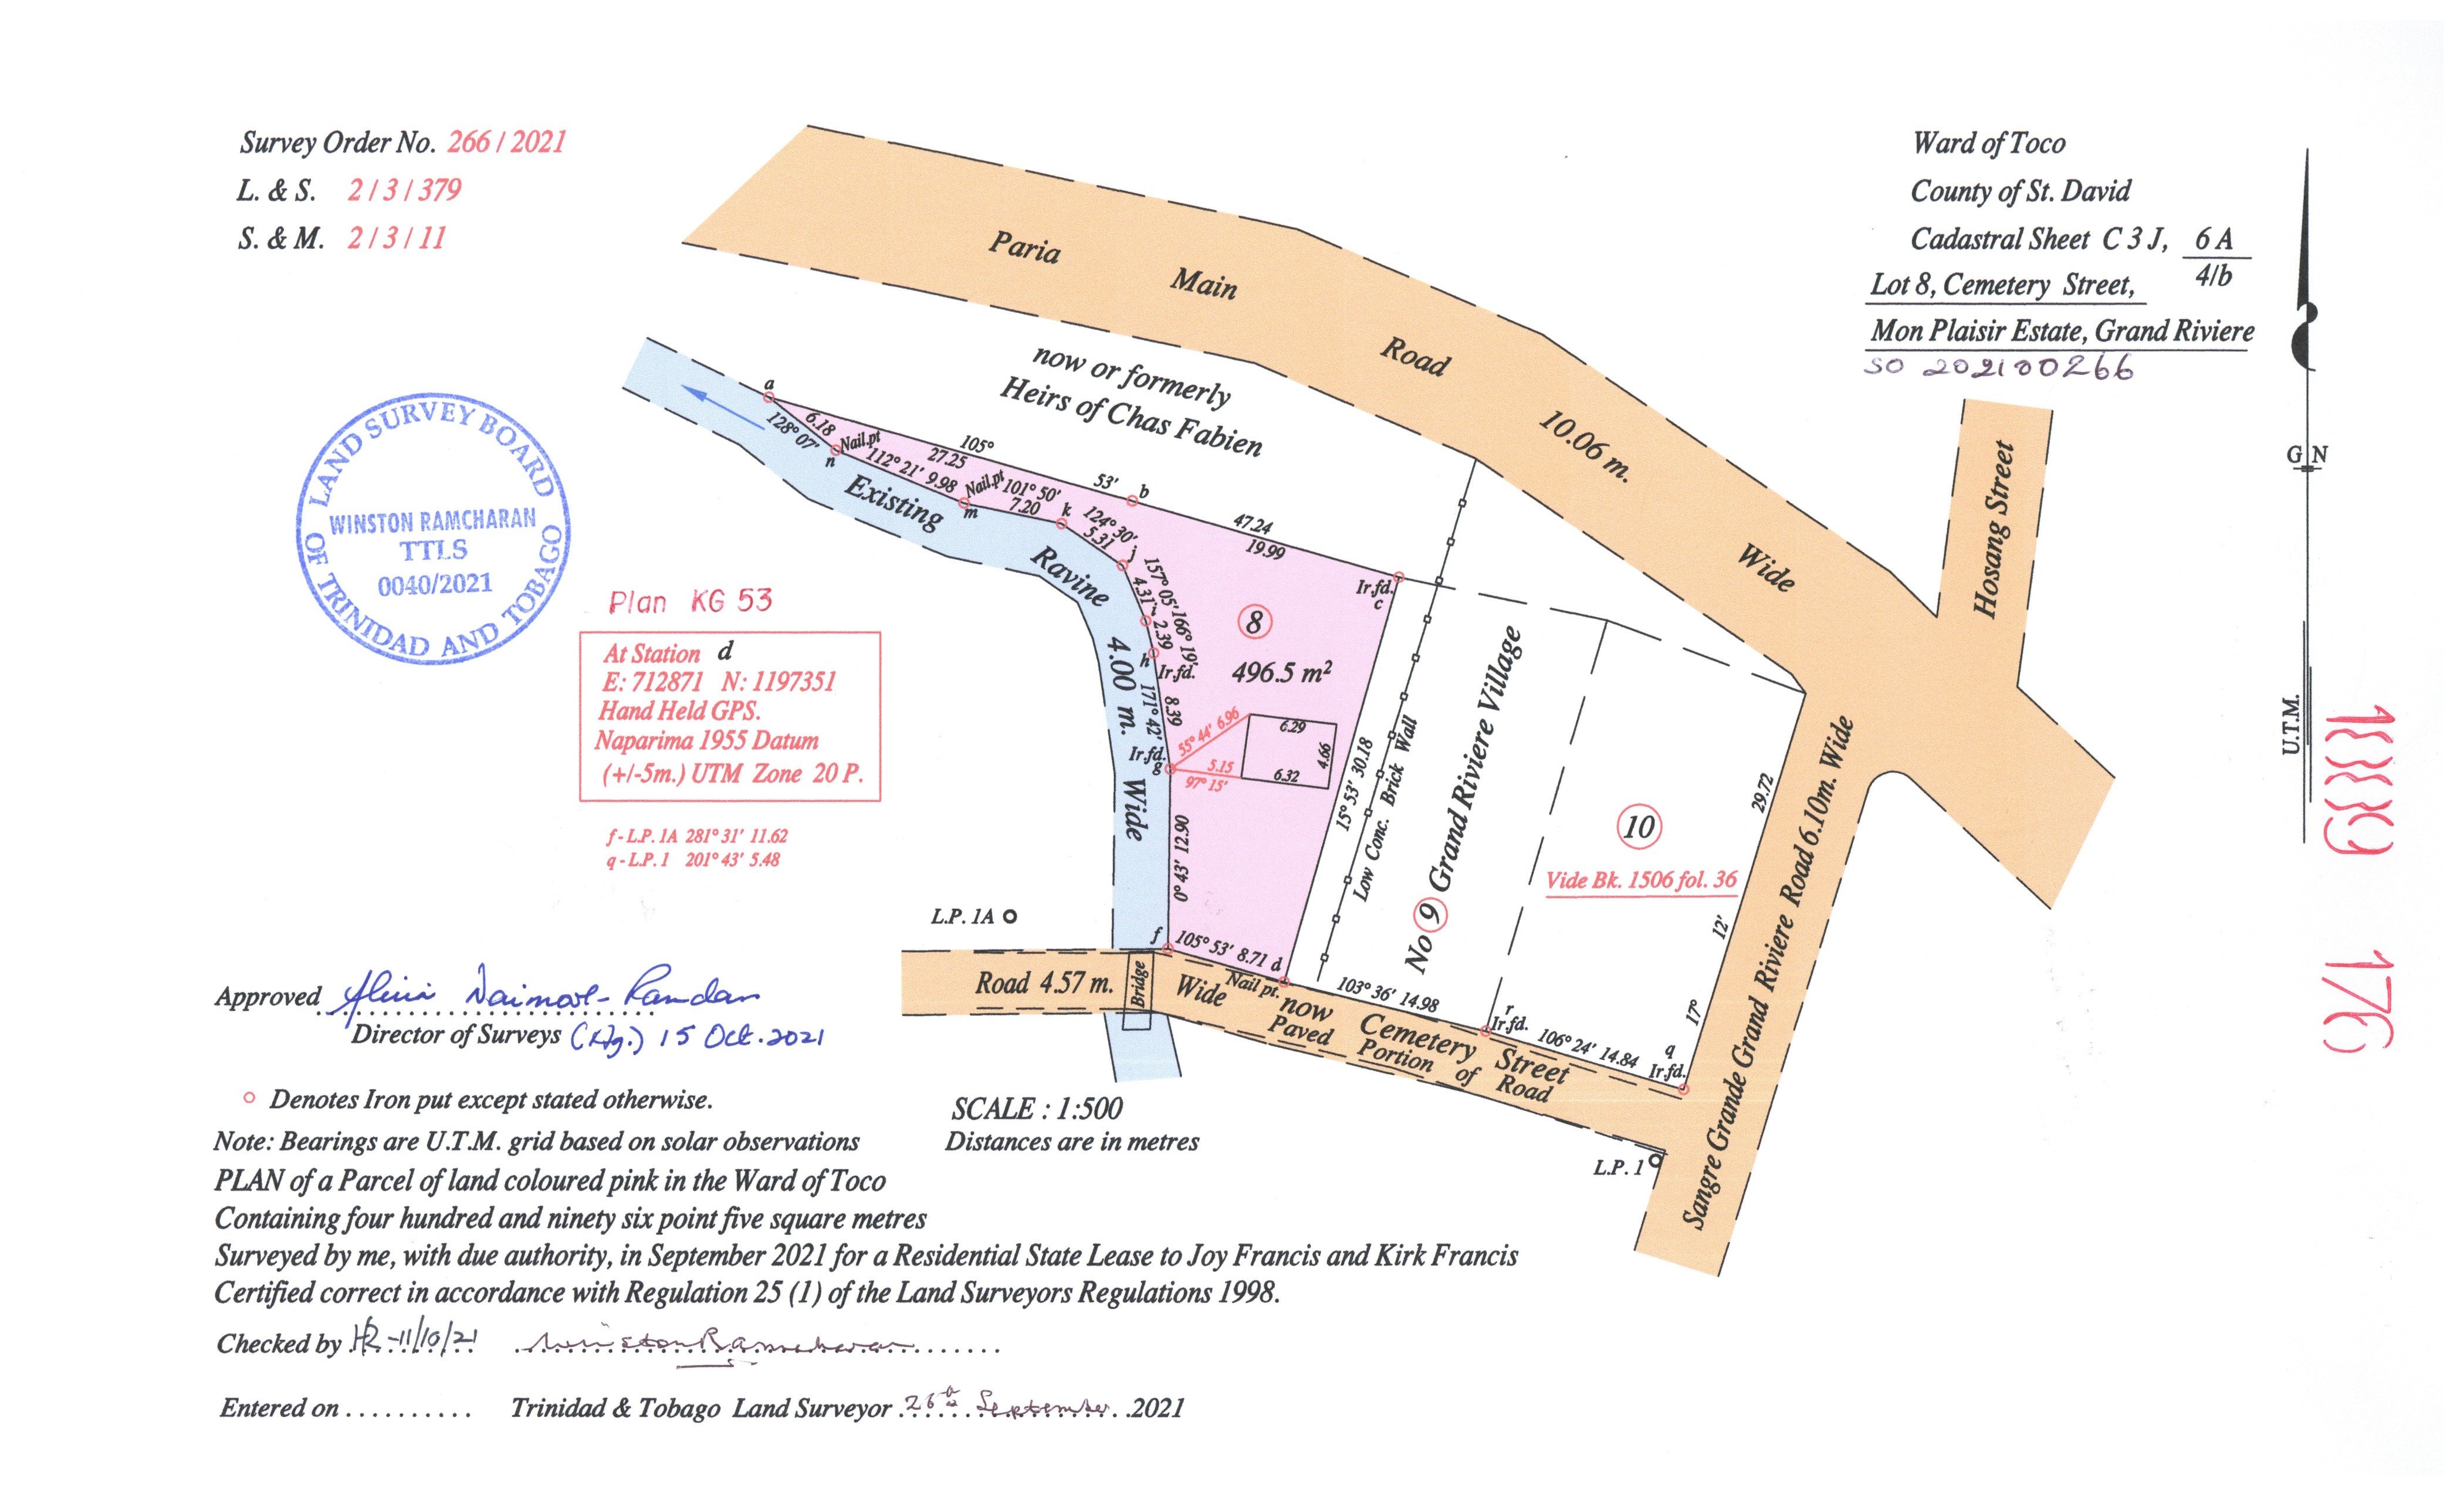 Survey Order No. 266 / 2021
L. & S. 2 / 3 / 379
S. & M. 2 / 3 / 11
Ward of Toco
County of St. David
Cadastral Sheet C 3 J, 6 A
4/b
Lot 8, Cemetery Street,
Mon Plaisir Estate, Grand Riviere
SO 202100266
G N
U.T.M.
176
LAND SURVEY BOARD
OF TRINIDAD AND TOBAGO
WINSTON RAMCHARAN
TTLS
0040/2021
Plan KG 53
At Station d
E: 712871 N: 1197351
Hand Held GPS.
Naparima 1955 Datum
(+/-5m.) UTM Zone 20 P.
f - L.P. 1A 281° 31' 11.62
q - L.P. 1 201° 43' 5.48
Paria Main Road 10.06 m. Wide
Hosang Street
now or formerly
Heirs of Chas Fabien
a
6.18
128° 07'
Nail.pt
n
105° 53'
27.25
47.24
19.99
112° 21' 9.98
Nail.pt
m
101° 50'
7.20
k
b
124° 30'
5.31
j
157° 05'
4.31
166° 19'
2.39
h
Ir.fd.
171° 42'
8.39
Ir.fd.
g
Ir.fd.
c
Existing Ravine 4.00 m. Wide
8
496.5 m²
55° 44' 6.96
5.15
97° 15'
6.29
4.66
6.32
0° 43' 12.90
15° 53' 30.18
Low Conc. Brick Wall
No 9 Grand Riviere Village
10
Vide Bk. 1506 fol. 36
29.72
17° 12'
Sangre Grande Grand Riviere Road 6.10m. Wide
L.P. 1A
f
105° 53' 8.71 d
Nail pt.
Road 4.57 m. Wide now Cemetery Street
Bridge
Paved Portion of Road
103° 36' 14.98
r
Ir.fd.
106° 24' 14.84
q
Ir.fd.
L.P. 1
Approved
Director of Surveys (Ag.) 15 Oct. 2021
Denotes Iron put except stated otherwise.
SCALE : 1:500
Note: Bearings are U.T.M. grid based on solar observations
Distances are in metres
PLAN of a Parcel of land coloured pink in the Ward of Toco
Containing four hundred and ninety six point five square metres
Surveyed by me, with due authority, in September 2021 for a Residential State Lease to Joy Francis and Kirk Francis
Certified correct in accordance with Regulation 25 (1) of the Land Surveyors Regulations 1998.
Checked by HR -11/10/21 Winston Ramcharan
Entered on .......... Trinidad & Tobago Land Surveyor 26th September 2021